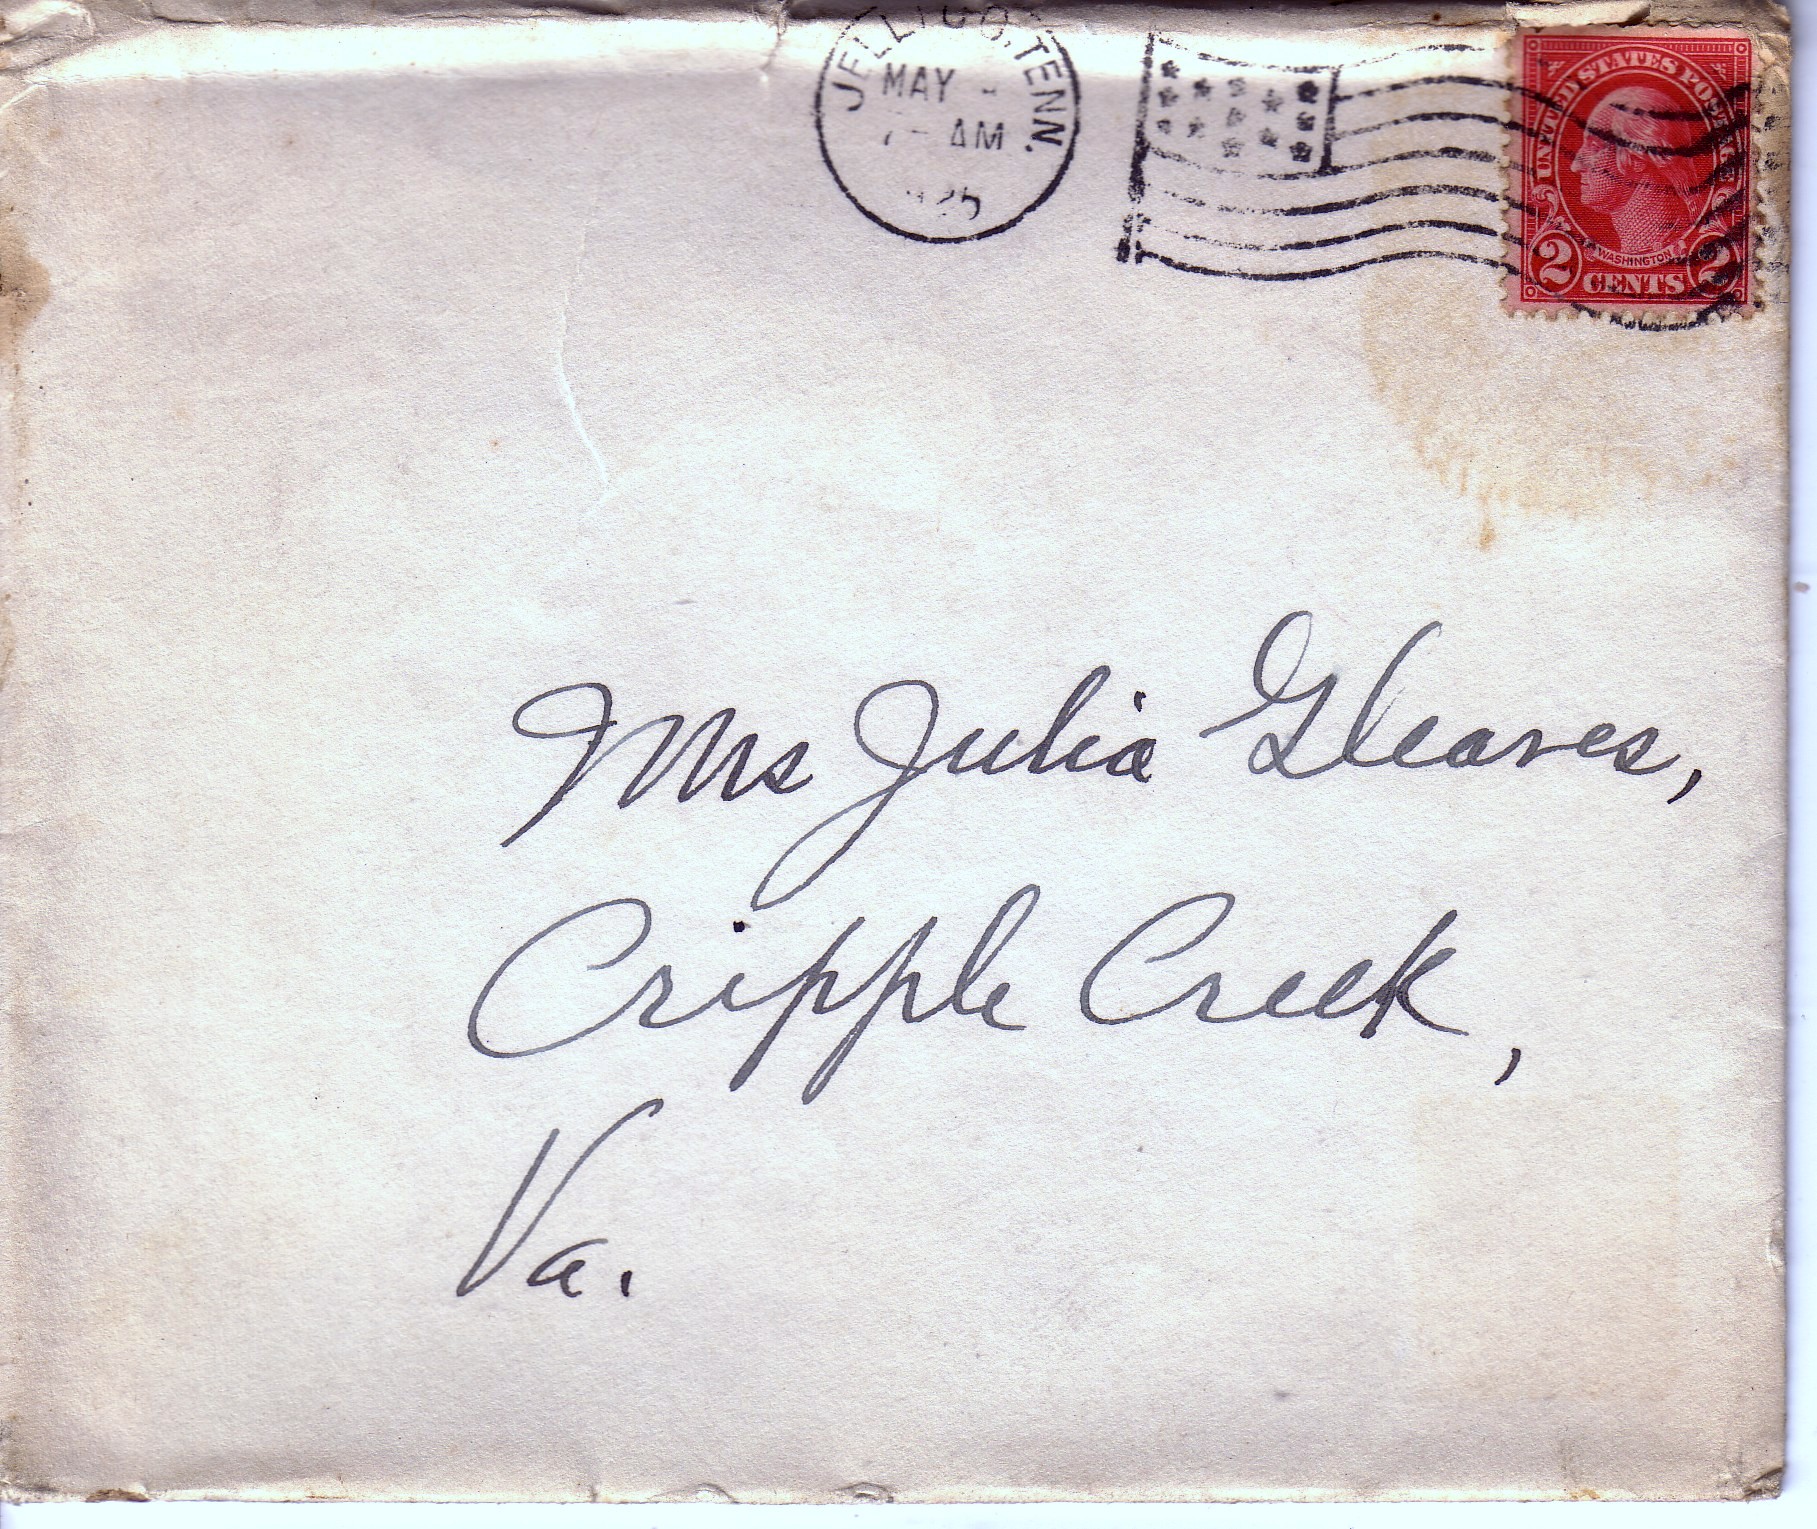 JELLICO, TENN.
MAY
7- AM
25
UNITED STATES POSTAGE
WASHINGTON
2 CENTS 2
Mrs Julia Gleaves,
Cripple Creek,
Va.